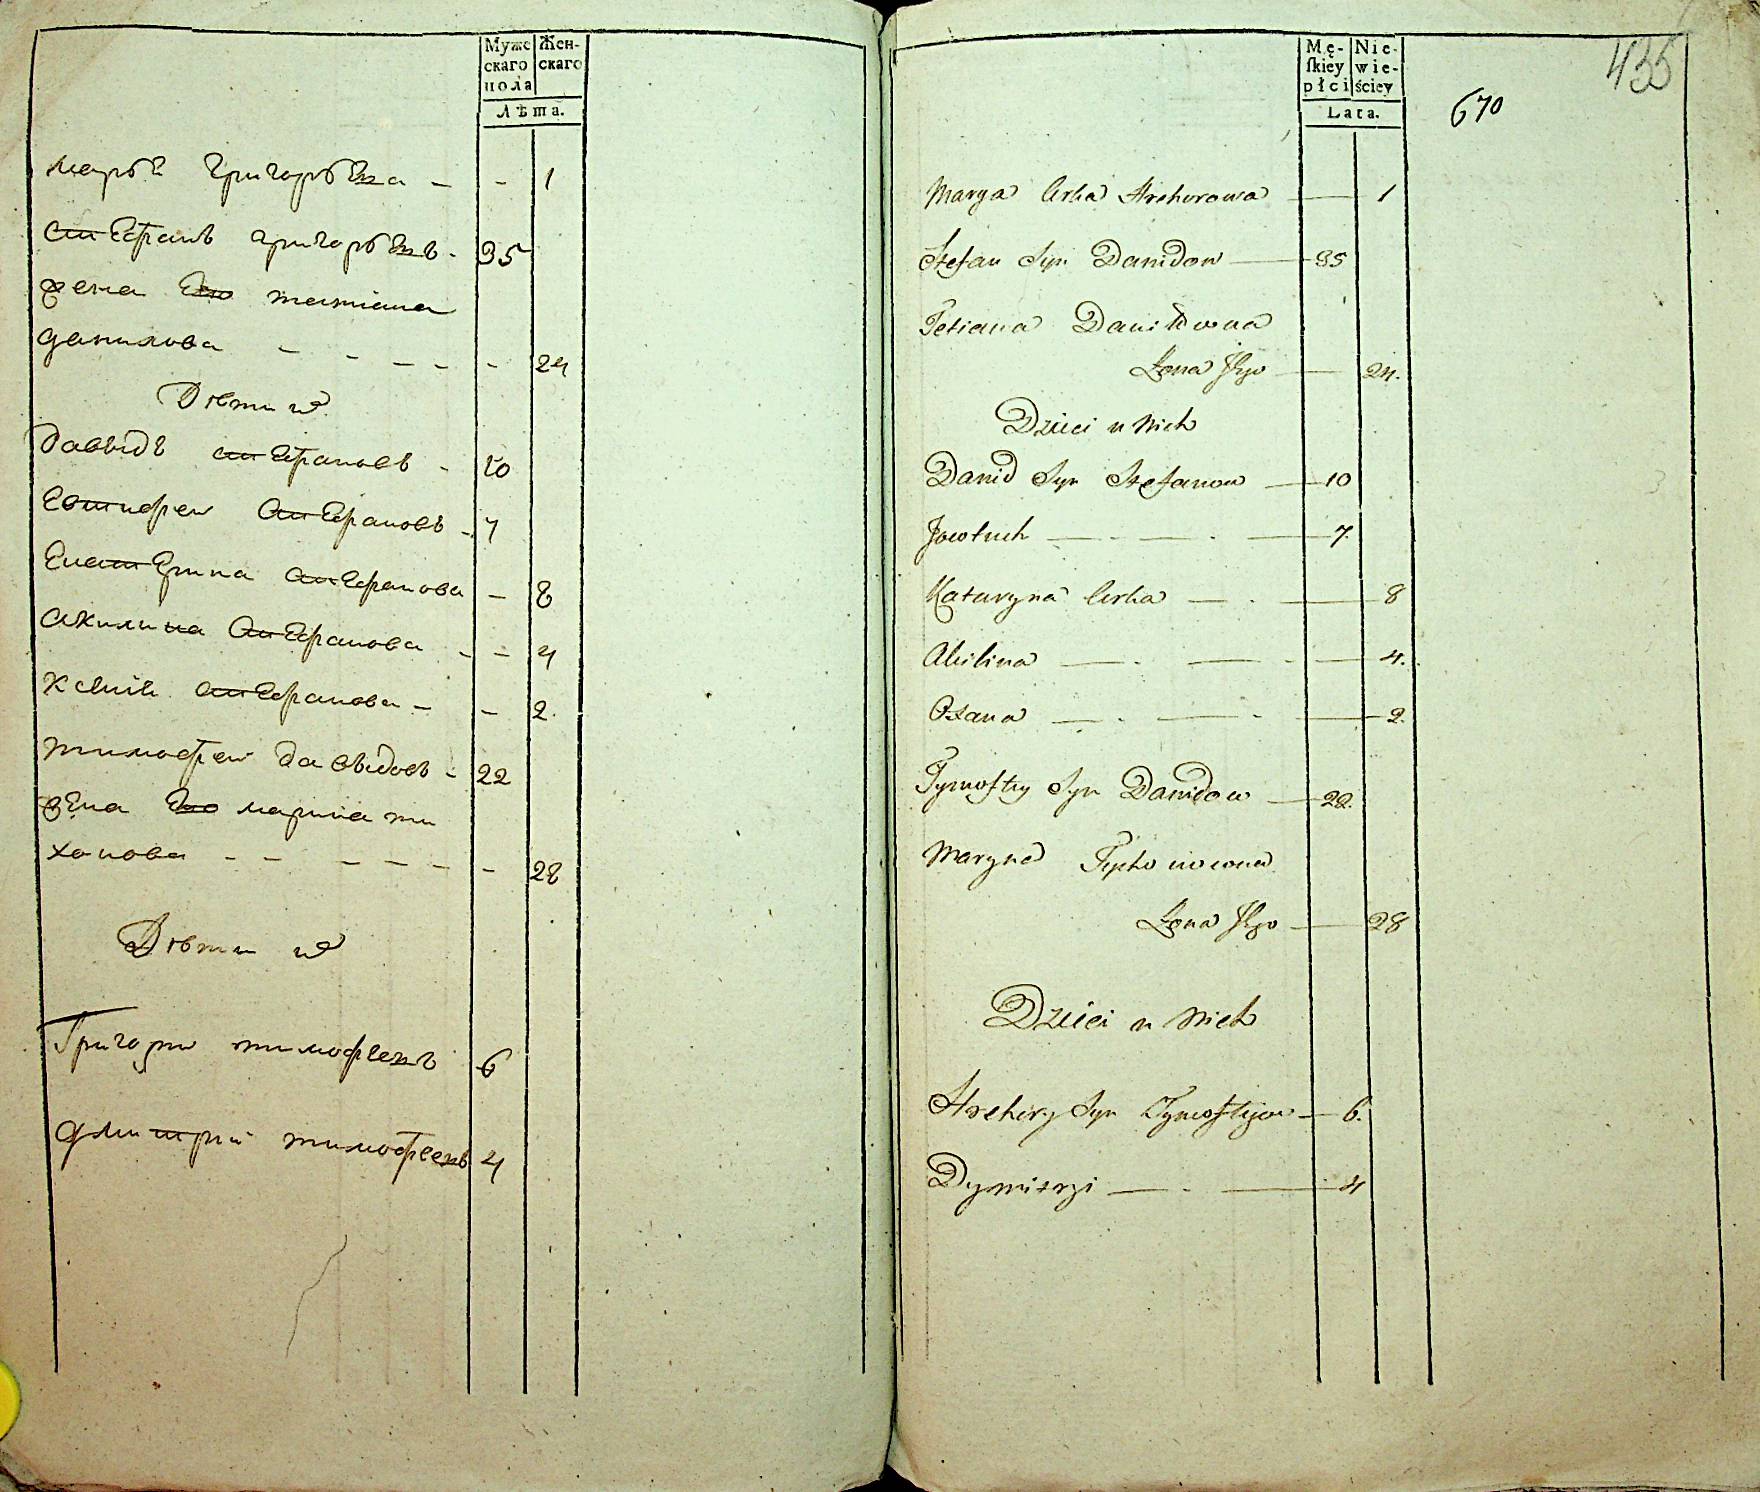 Муже Жен-
скаго скаго
пола
Лѣта.
марья григорьева - - 1
стефанъ григорьевъ - 35
жена Его татиана
данилова - - - - - 24
Дѣти ихъ
давыдъ стефановъ - 10
Евтифеи Стефановъ - 7
Екатерина стефанова - 8
Акилина Стефанова - - 4
ксенія стефанова - - 2.
тимофеи давыдовъ - 22
жена Его марина ти
хонова - - - - - - 28
Дѣти ихъ
Григори тимофеевъ 6
дмитрій тимофеевъ 4
435
Mę- Nie-
skiey wie-
płci ściey
Lata.
670
Marya Crka Hrehorowa — 1
Stefan Syn Dawidow — 35
Tetiana Daniłowna
Żona Jego — 24.
Dzieci u Nich
Dawid Syn Stefanow — 10
Jowtuch — . — . — 7.
Kataryna Crka — . — 8
Akilina — . — . — 4.
Oxana — . — . — 2.
Tymoftey Syn Dawidow — 22.
Maryna Tychonowna
Żona Jego — 28
Dzieci u Nich
Hrehory Syn Tymoftejow — 6.
Dymitryi — . — 4